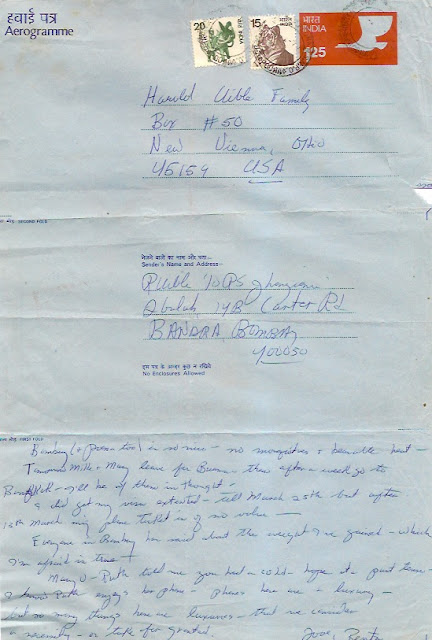 हवाई पत्र
Aerogramme
20
15
भारत
INDIA
1.25
Harold Uible Family
Box #50
New Vienna, Ohio
45159 USA
SECOND FOLD
भेजने वाले का नाम और पता
Sender's Name and Address
Uible c/o PS
14B Carter Rd
BANDRA BOMBAY
400050
इस पत्र के अन्दर कुछ न रखिये
No Enclosures Allowed
FIRST FOLD
Bombay is so nice - no mosquitoes & bearable heat -
Tomorrow Milt & Mary leave for Burma - then after a week go to
I'll be of them in thought -
I did get my visa extended - till March 25th but after
15th March my plane ticket is of no value -
Everyone in Bombay has said about the weight I've gained - which
I'm afraid is true!
Mary O - Ruth told me you had a cold - hope it's past tense -
I know Ruth enjoys her phone - phones here are a luxury -
but so many things here are luxuries - that we consider
a necessity - or take for granted.
Love,